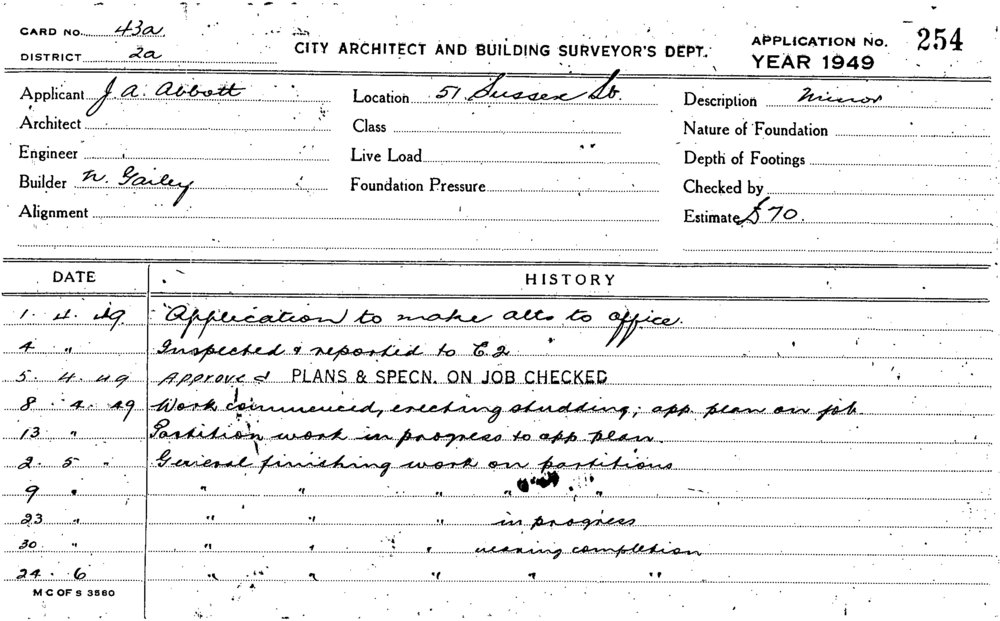 CARD NO. 43a
DISTRICT 2a
CITY ARCHITECT AND BUILDING SURVEYOR'S DEPT.
APPLICATION No. 254
YEAR 1949
Applicant J. A. Abbott Location 51 Sussex St. Description Minor
Architect Class Nature of Foundation
Engineer Live Load Depth of Footings
Builder W. Gailey Foundation Pressure Checked by
Alignment Estimate £70.
DATE HISTORY
1. 4. 49. Application to make alts to office.
4 " Inspected & reported to C.2
5. 4. 49 Approved PLANS & SPECN. ON JOB CHECKED
8 4. 49 Work commenced, erecting studding; app. plan on job
13 " Partition work in progress to app plan.
2. 5 " General finishing work on partitions
9 " " " " " "
23 " " " " in progress
30 " " " " nearing completion
24. 6 " " " " "
M C OF S 3560